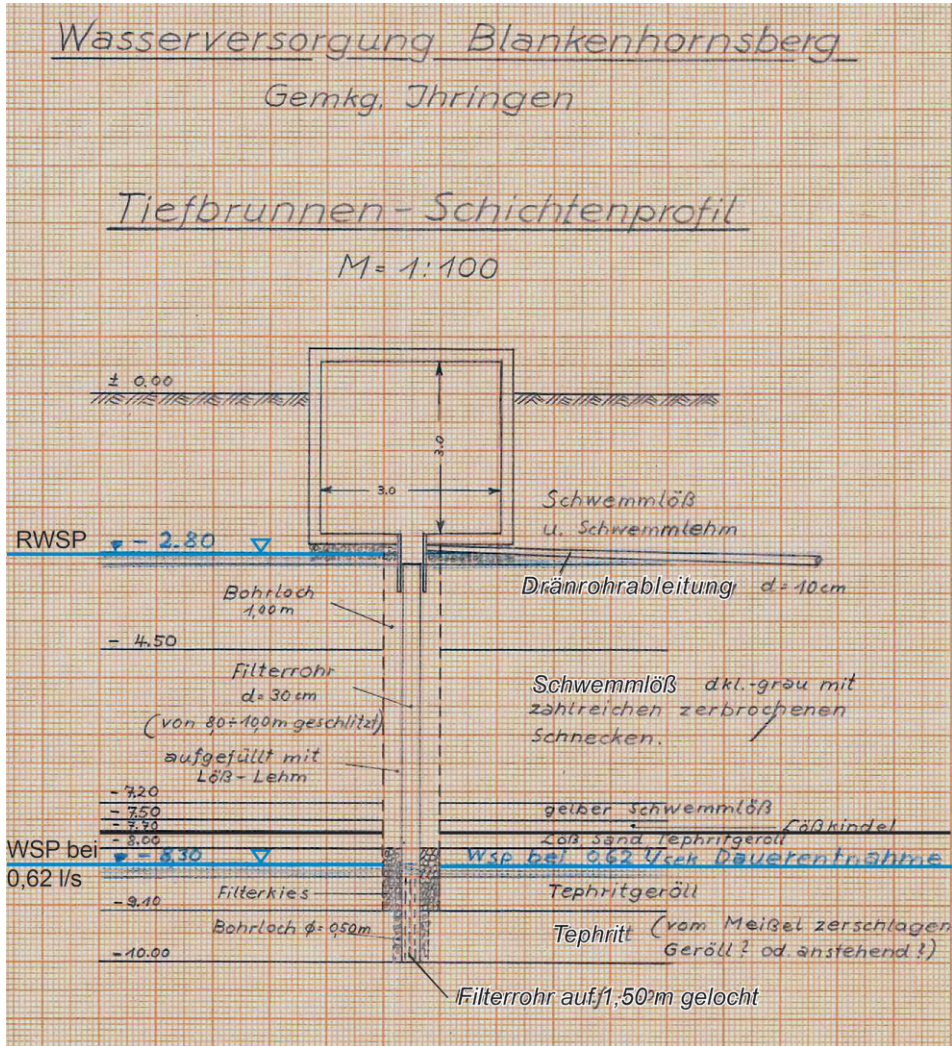 Wasserversorgung Blankenhornsberg
Gemkg. Ihringen
Tiefbrunnen - Schichtenprofil
M = 1:100
± 0.00
3.0
3.0
Schwemmlöß
u. Schwemmlehm
RWSP
- 2.80
Dränrohrableitung d = 10 cm
Bohrloch
1,00 m
- 4.50
Filterrohr
d = 30 cm
(von 8,0 ÷ 10,0 m geschlitzt)
Schwemmlöß dkl.-grau mit
zahlreichen zerbrochenen
Schnecken.
aufgefüllt mit
Löß-Lehm
- 7.20
gelber Schwemmlöß
- 7.50
Lößkindel
- 7.70
Löß, Sand, Tephritgeröll
- 8.00
WSP bei
0,62 l/s
- 8.30
Wsp bei 0.62 l/sek Dauerentnahme
Filterkies
Tephritgeröll
- 9.10
Bohrloch ϕ = 0,50 m
Tephrit (vom Meißel zerschlagen
Geröll? od. anstehend?)
- 10.00
Filterrohr auf 1,50 m gelocht